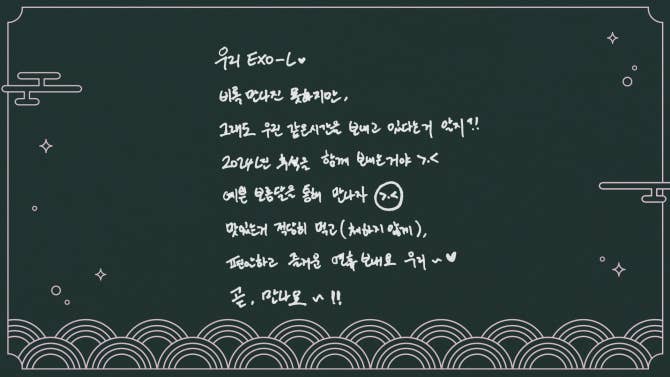 우리 EXO-L♥
비록 만나진 못하지만,
그래도 우린 같은시간을 보내고 있다는거 알지?!!
2024년 추석을 함께 보내는거야 >.<
예쁜 보름달을 통해 만나자 >.<
맛있는거 적당히 먹고(체하지 않게),
편안하고 즐거운 연휴 보내요 우리~♥
곧, 만나요~!!